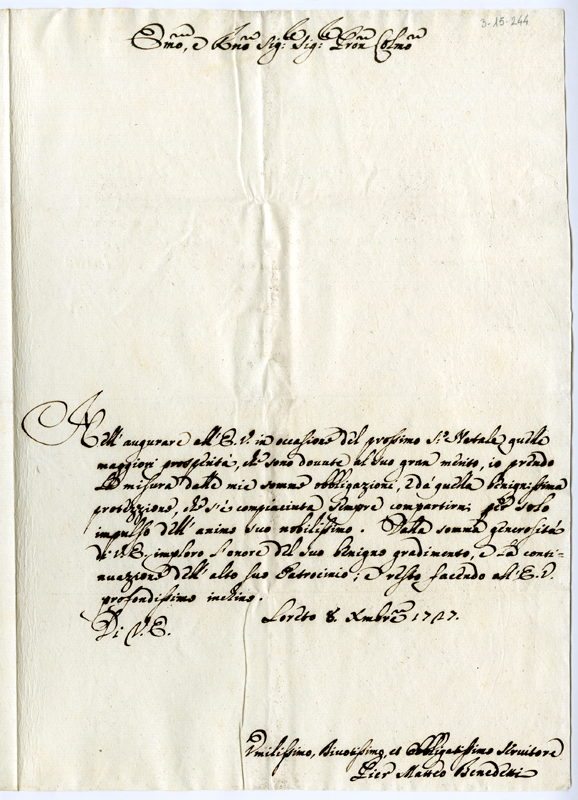 3-15-244
Emo, e Rmo Sig:re Sig:re Pron Colmo
Nell' augurare all' E. V. in occasione del prossimo S:o Natale quelle
maggiori prosperità, che sono dovute al suo gran merito, io prendo
la misura dalle mie somme obbligazioni, e da quella benignissima
protezzione, che s'è compiaciuta sempre compartirmi per solo
impulso dell' animo suo nobilissimo. Dalla somma generosità
di V. E. imploro l'onore del suo benigno gradimento, e la conti-
nuazione dell' alto suo Patrocinio; e resto facendo all' E. V.
profondissimo inchino.
Di V. E. Loreto 8. Xmbre 1727.
Umilissimo, Divotissimo, et Obbligatissimo Servitore
Pier Matteo Benedetti